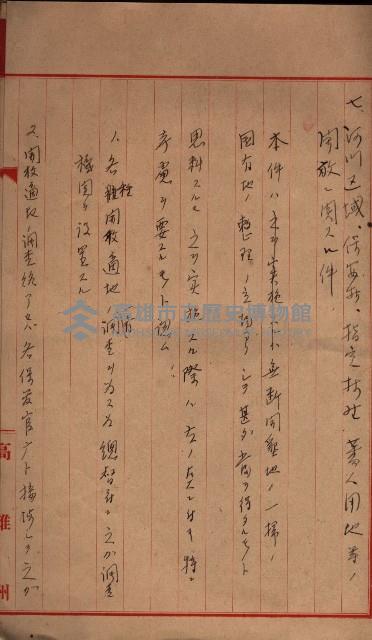 七、河川区域、保安林、指定抜地、蕃人用地等ノ
開放ニ関スル件
本件ハ之ヲ実施スルハ無断開墾地ノ一掃ノ
国有地ノ整理ノ立場ヨリシテ甚ダ当ヲ得タルモノト
思料スルモ之ヲ実施スル際ハ左ノ点ニ付キ特ニ
考慮ヲ要スルモノト認ム
1. 各種開放適地ノ調査ノ為ニハ総督府ニ之ガ調査
機関ヲ設置スル
2. 開放適地調査終了セバ各保安官庁ト接渉シ之ガ
高雄州
高雄市立歴史博物館